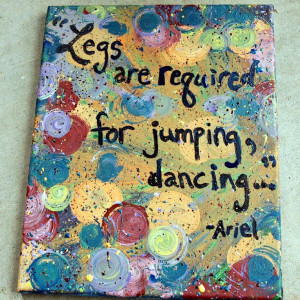 "Legs
are required
for jumping,
dancing..."
-Ariel